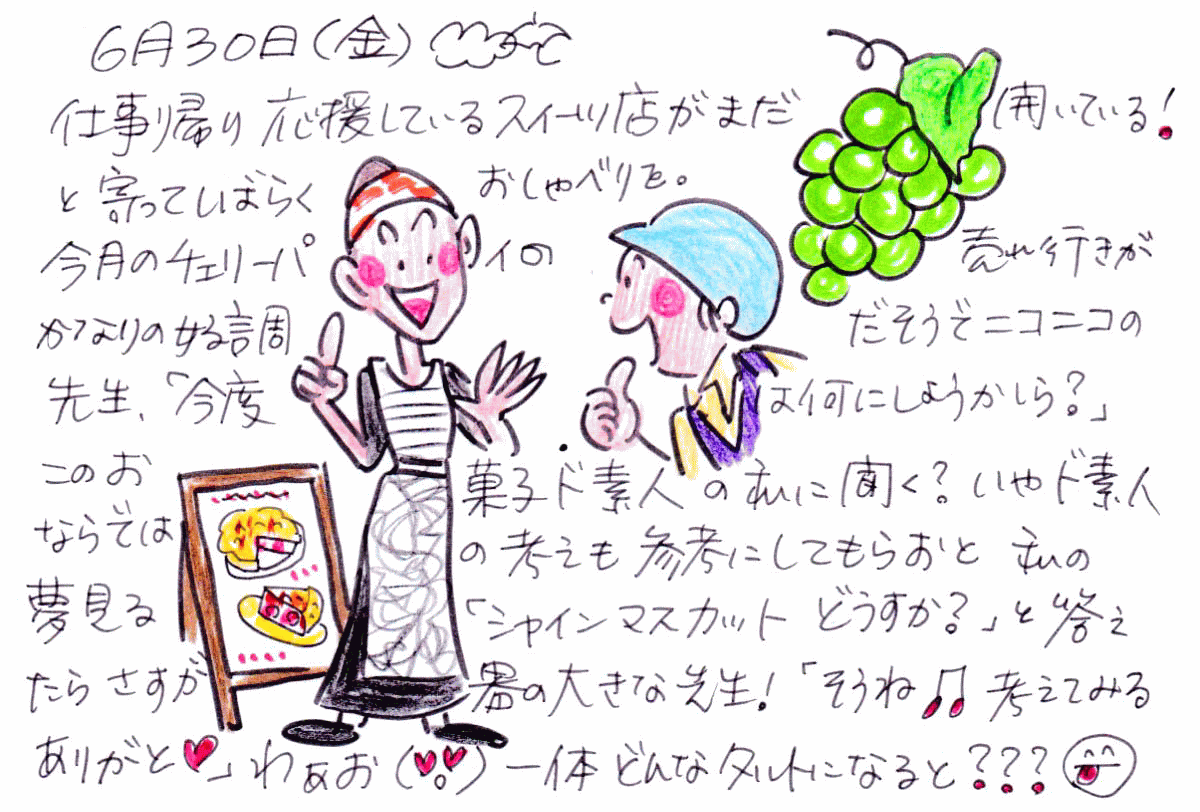 6月30日(金)
仕事り帰り応援しているスイーツ店がまだ開いている!
と寄ってしばらくおしゃべりを。
今月のチェリーパイの売れ行きが
かなりの好調だそうでニコニコの
先生、「今度は何にしようかしら?」
このお菓子ド素人の私に聞く?いやド素人
ならではの考えも参考にしてもらおと私の
夢見る「シャインマスカットどうすか?」と答え
たらさすが器の大きな先生!「そうね♫考えてみる
ありがと♥」わぁお(♥!♥)一体どんなタルトになると???